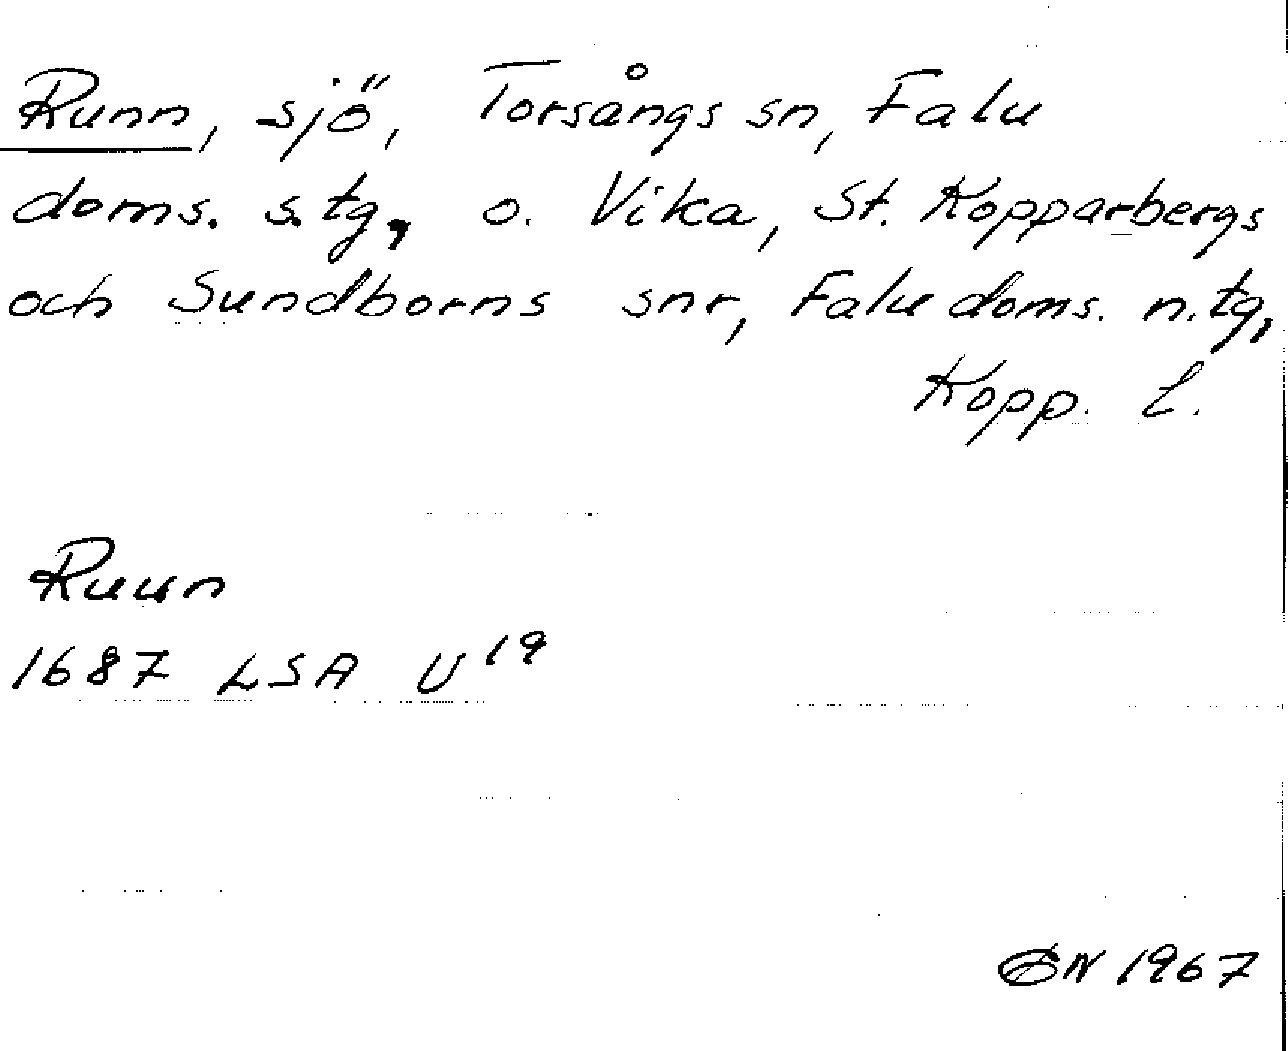 Runn, sjö, Torsångs sn, Falu
doms. s. tg, o. Vika, St. Kopparbergs
och Sundborns snr, Falu doms. n. tg,
Kopp. l.
Ruun
1687 LSA U 19
1967